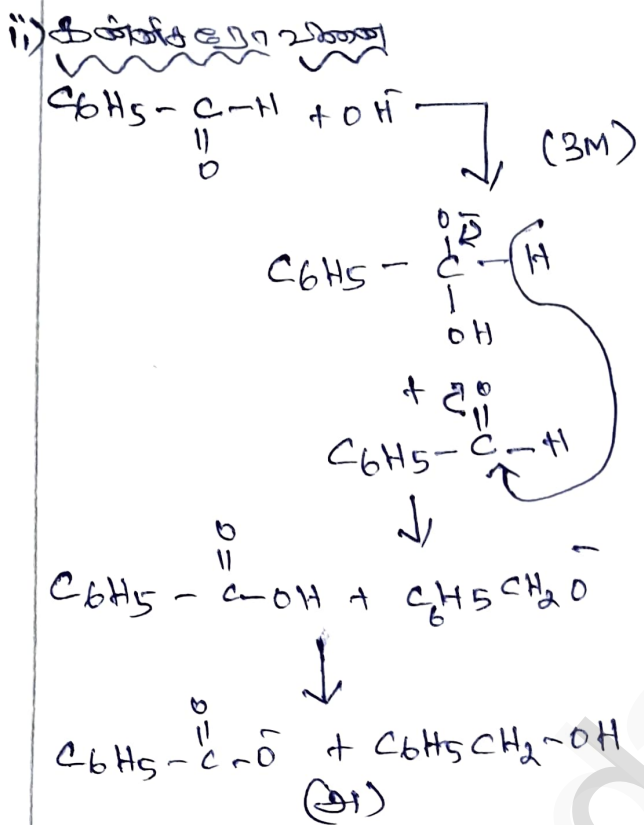 ii) கன்னிசரோ வினை
C6H5 - C - H + OH⁻ →
||
O
(3M)
O⁻
|
C6H5 - C - H
|
OH
+ O
||
C6H5 - C - H
↓
O
||
C6H5 - C - OH + C6H5CH2O⁻
↓
O
||
C6H5 - C - O⁻ + C6H5CH2 - OH
(அ)